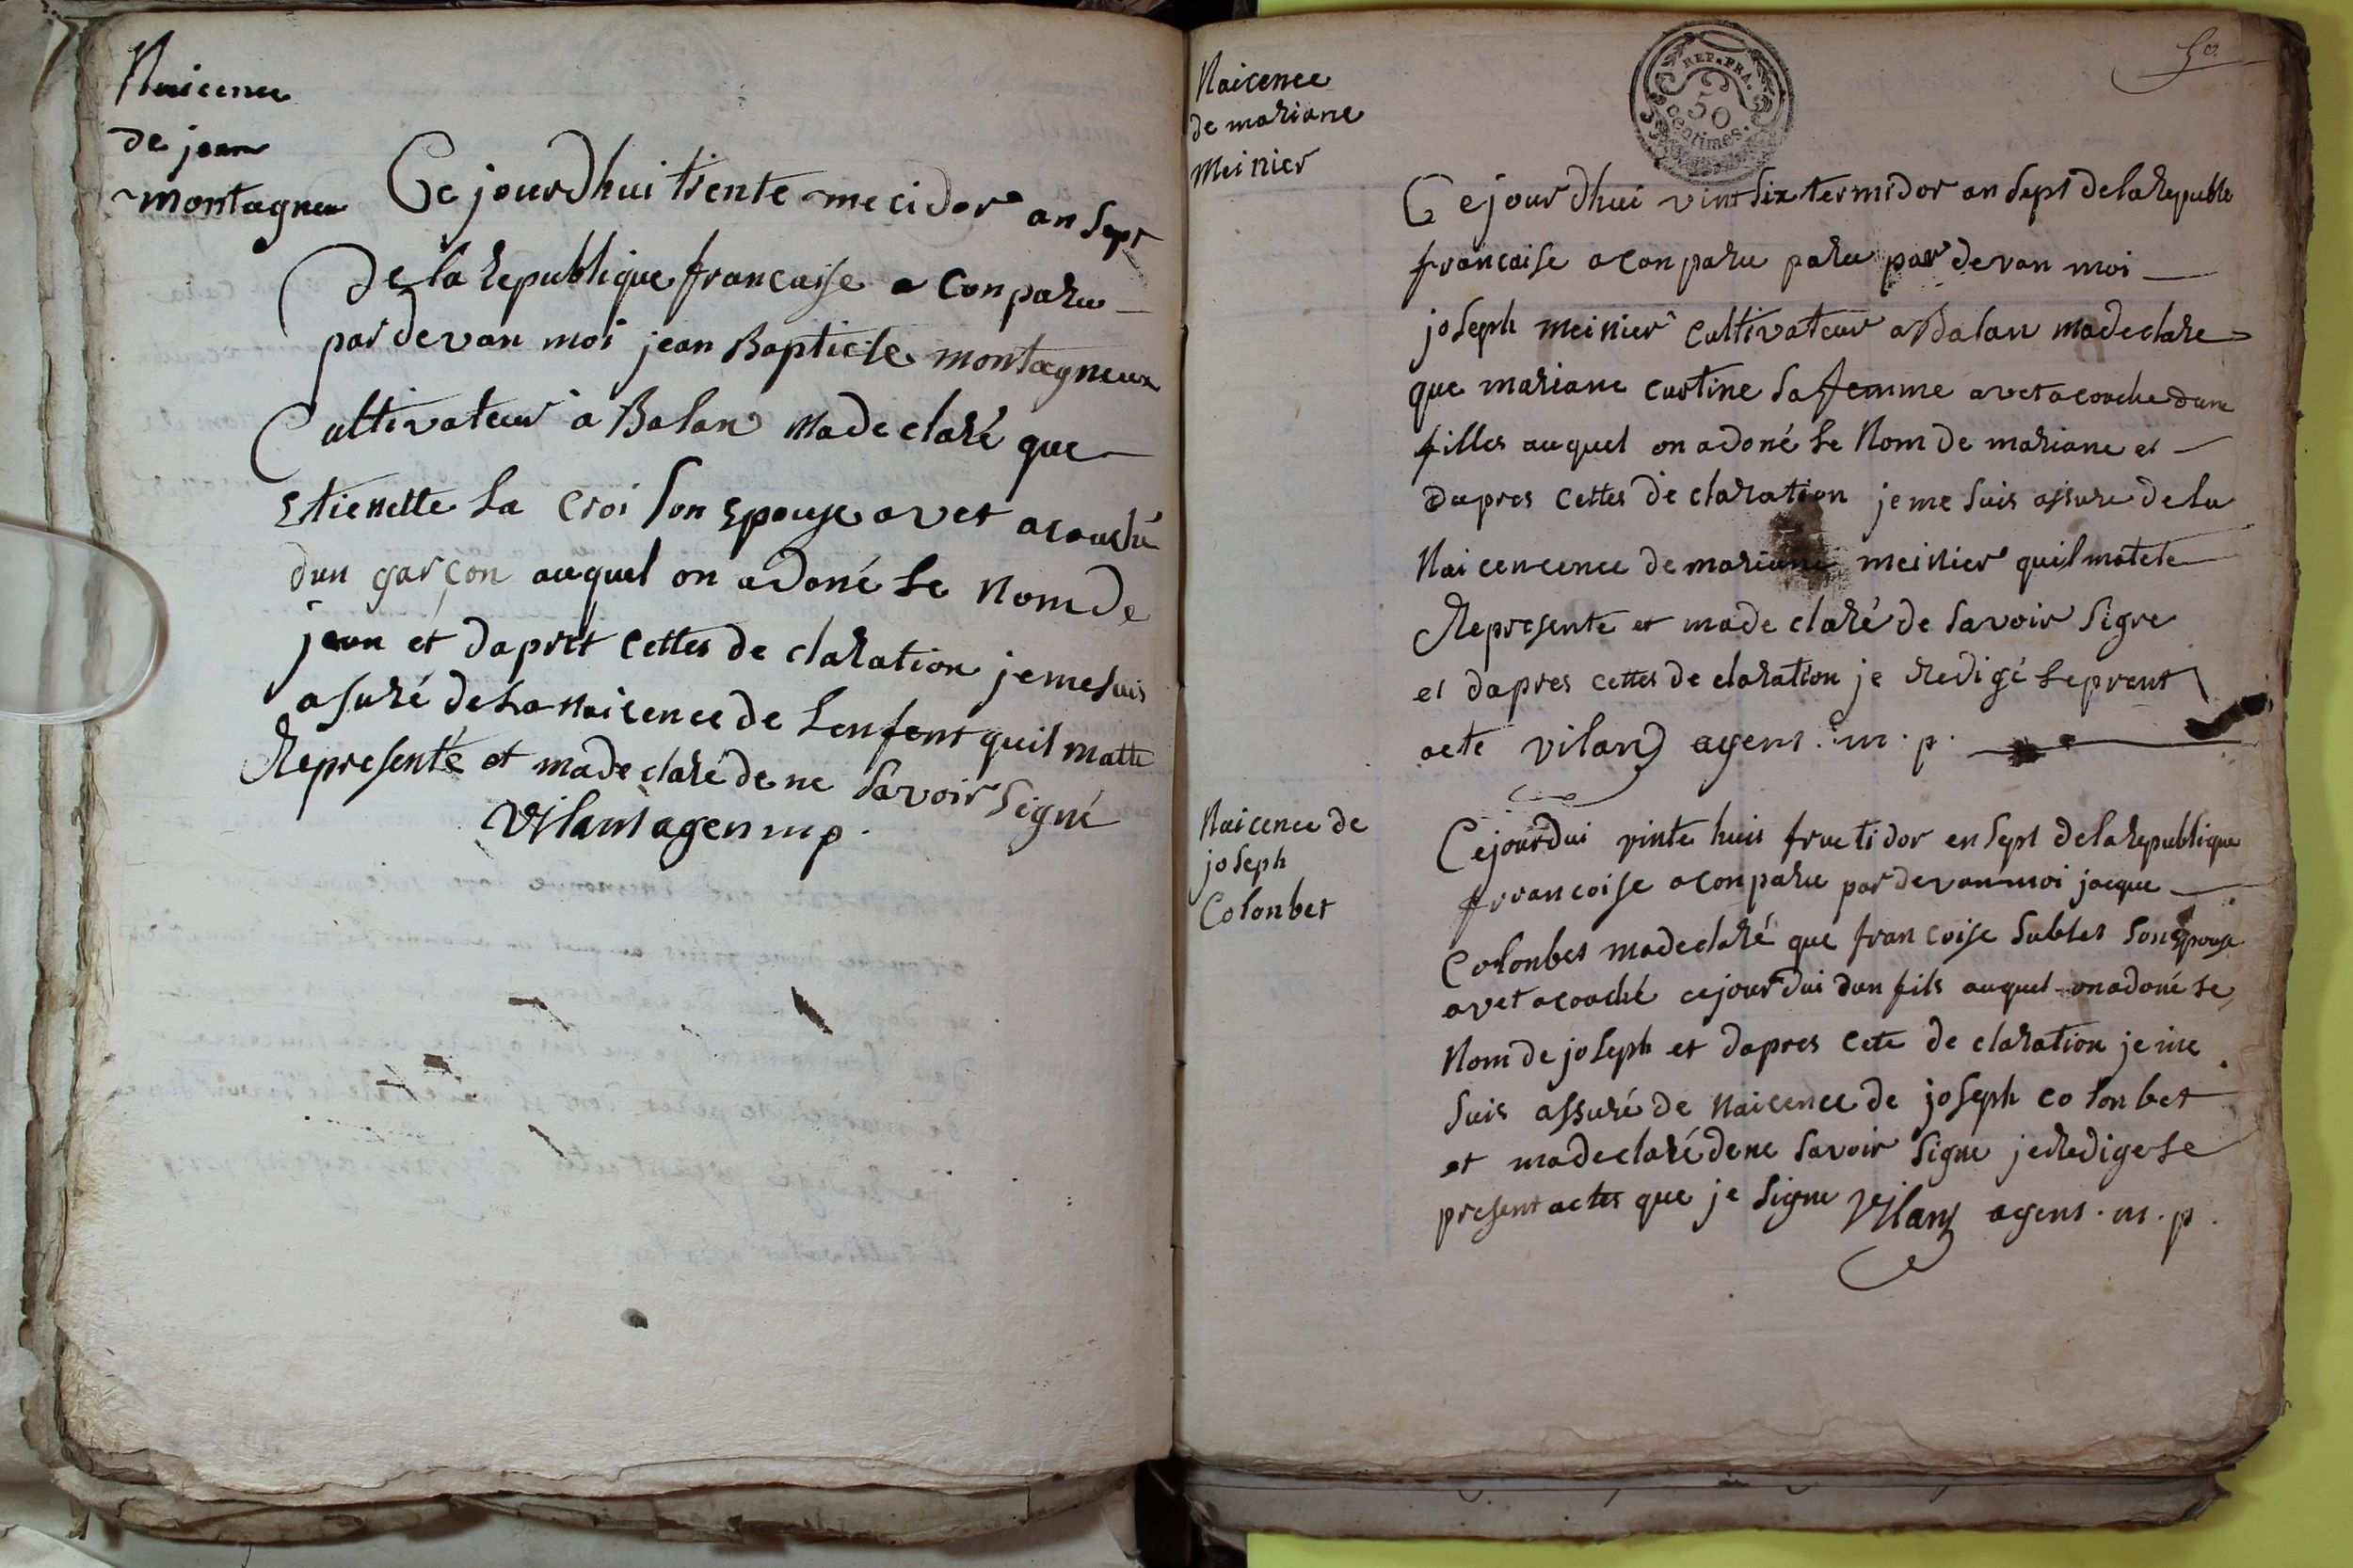 Naicence
de jean
montagneu
Ce jourdhui trente mecidor an sept
de la Republique francaise a conparu
par devan moi jean Baptiste montagneux
Cultivateur a Balan ma declaré que
Etienette la croi son Epouse avet acouché
dun garçon auquel on a doné le nom de
jean et dapret cettes de claration je me suis
asuré de la naicence de lenfent quil matte
Representé et ma de claré de ne savoir signé
Vilant agen m p.
50
REP. FRA.
50
centimes.
Naicence
de mariane
Meinier
Ce jour dhui vint six termidor an sept de la Republe
francaise a conparu paru par devan moi
joseph meinier cultivateur a Balan ma declare
que mariane custine sa femme avet acouche dune
filles auquel on a doné le Nom de mariane et
dapres cettes de claration je me suis assure de la
Naicencence de mariane meinier quil matete
Representé et ma de claré de savoir signe
et dapres cettes de claration je redigé le prent
acte viland agent . m . p .
Naicence de
joseph
Colonbet
Ce jourdui vinte huit fructidor en sept de la Republique
francoise a conparu par devan moi jacque
Colonbet ma declaré que francoise sublet son Epouse
avet acouché ce jourdui dun fils auquel on a doné le
Nom de joseph et dapres cete de claration je me
suis assuré de naicence de joseph colonbet
et ma declaré de ne savoir signe je redige le
present actes que je signe Viland agent . m . p .